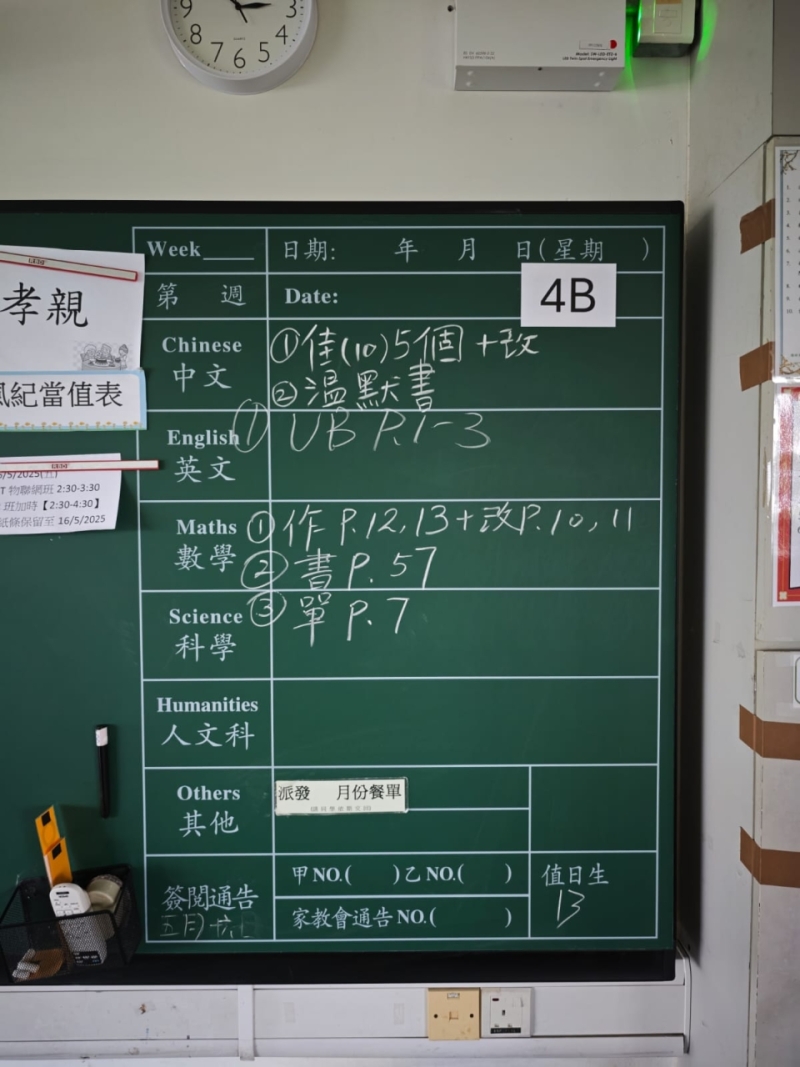 3
9
8
7
6
5
4
QUARTZ
孝親
風紀當值表
5/5/2025(五)
T 物聯網班 2:30-3:30
班加時【2:30-4:30】
紙條保留至 16/5/2025
Week____
日期: 年 月 日(星期 )
第 週
Date:
4B
Chinese
中文
①佳(10)5個+改
②溫默書
English
英文
① UB P.1-3
Maths
數學
①作P.12,13+改P.10,11
②書P.57
Science
科學
③單P.7
Humanities
人文科
Others
其他
派發 月份餐單
簽閱通告
五月十六日
甲NO.( )乙NO.( )
家教會通告NO.( )
值日生
13